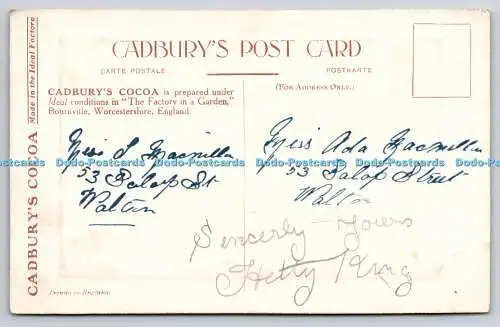 CADBURY'S POST CARD
CARTE POSTALE
POSTKARTE
CADBURY'S COCOA is prepared under
Ideal conditions in "The Factory in a Garden,"
Bournville, Worcestershire, England
(FOR ADDRESS ONLY.)
CADBURY'S COCOA Made in the Ideal Factory
Miss S Macmillan
53 Salop St
Walton
Miss Ada Macmillan
53 Salop Street
Walton
Sincerly Yours
Hetty King
Printed in England.
Dodo-Postcards Dodo-Postcards Dodo-Postcards Dodo-Postcards Dodo-Postcards